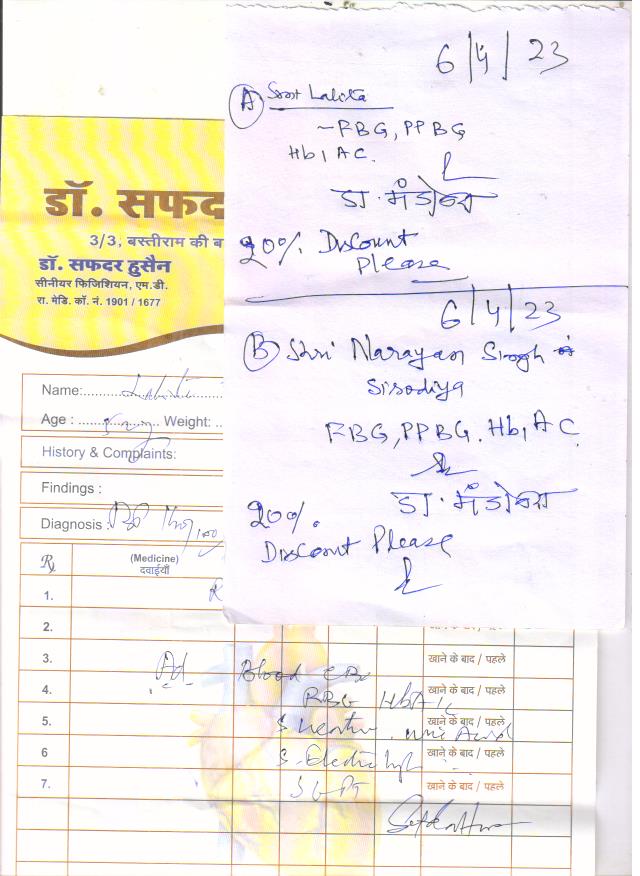 6/4/23
(A) Smt Lalita
~FBG, PPBG
Hb1AC.
डा. मंडोवरा
20% Discount
Please
6/4/23
(B) Shri Narayan Singh
Sisodiya
FBG, PPBG. Hb1AC
डा. मंडोवरा
20%.
Discount Please
डॉ. सफद
3/3, बस्तीराम की ब
डॉ. सफदर हुसैन
सीनीयर फिजिशियन, एम.डी.
रा. मेडि. कॉ. नं. 1901 / 1677
Name:
Age : Weight:
History & Complaints:
Findings :
Diagnosis :
Rx (Medicine)
दवाईयाँ
1.
2. खाने के बाद / पहले
3. Ad Blood CBC खाने के बाद / पहले
4. RBG HbA1c खाने के बाद / पहले
5. S. Uric Acid खाने के बाद / पहले
6 S. Electrolyt खाने के बाद / पहले
7. SGPT खाने के बाद / पहले